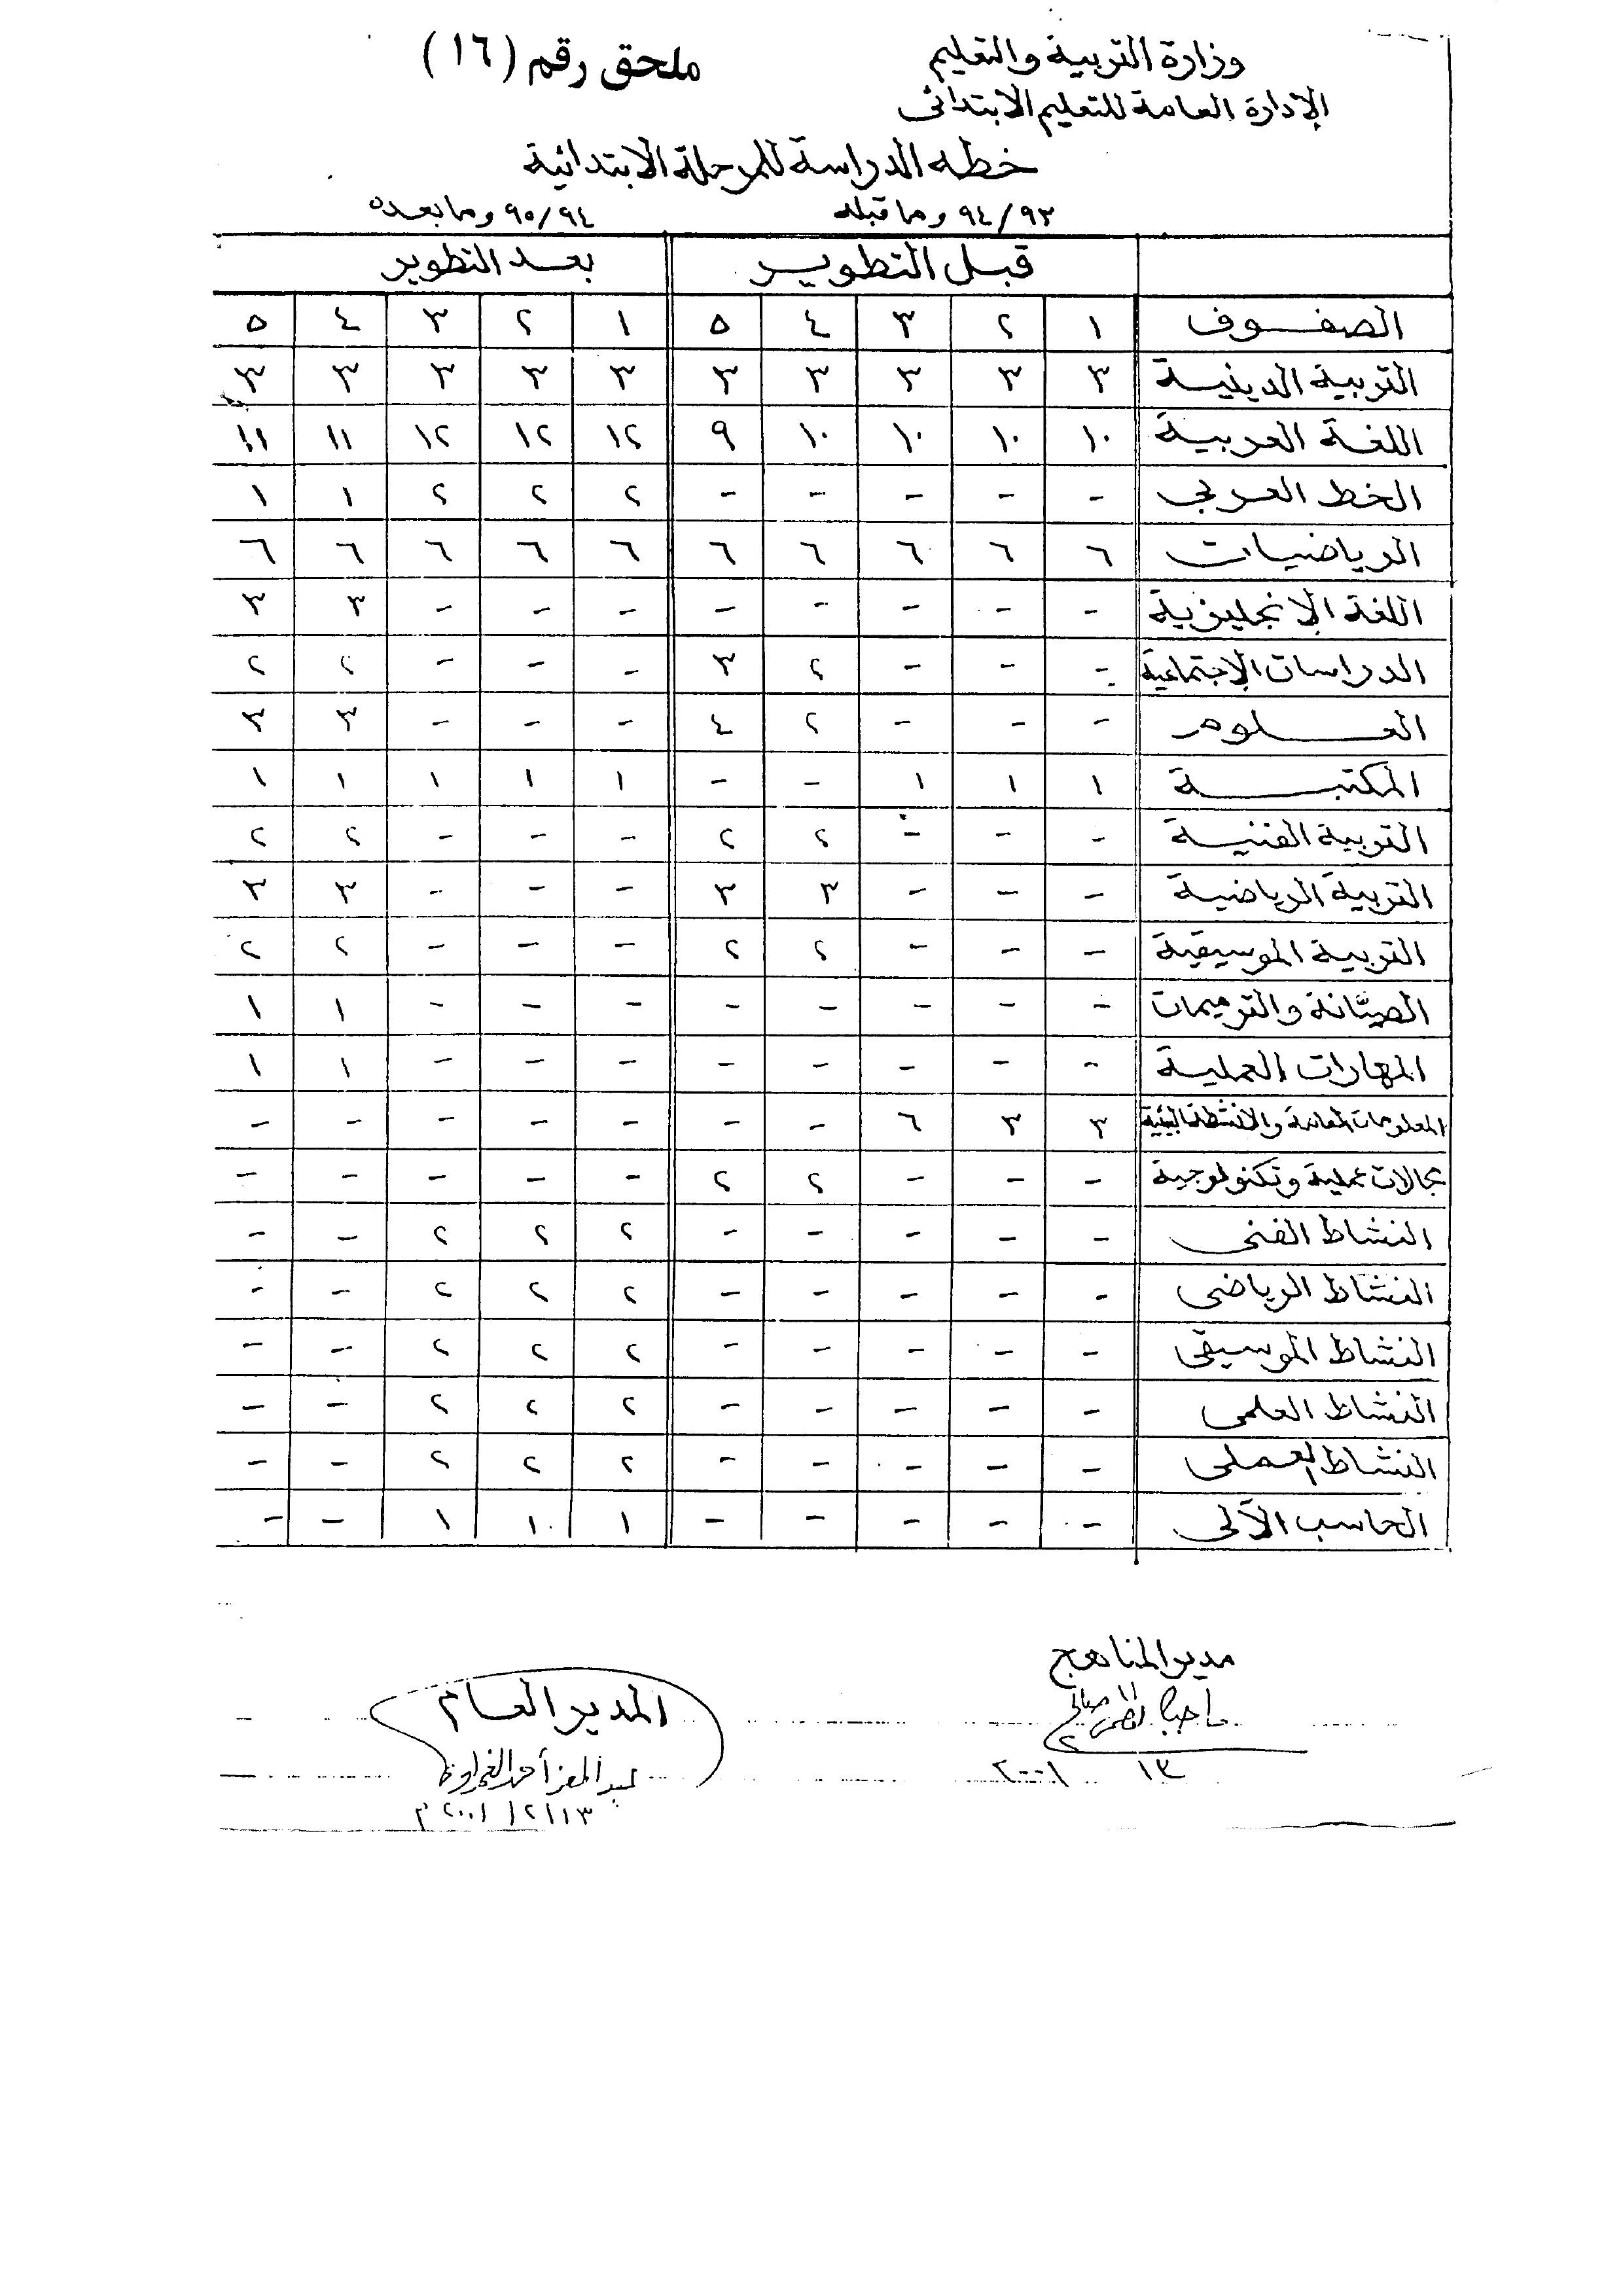 ملحق رقم (١٦)
وزارة التربية والتعليم
الإدارة العامة للتعليم الابتدائى
خطه الدراسة للمرحلة الابتدائية
٩٤/٩٣ وما قبله ٩٥/٩٤ وما بعده
قبل التطوير بعد التطوير
الصفوف ١ ٢ ٣ ٤ ٥ ١ ٢ ٣ ٤ ٥
التربية الدينية ٣ ٣ ٣ ٣ ٣ ٣ ٣ ٣ ٣ ٣
اللغة العربية ١٠ ١٠ ١٠ ١٠ ٩ ١٢ ١٢ ١٢ ١١ ١١
الخط العربى - - - - - ٢ ٢ ٢ ١ ١
الرياضيات ٦ ٦ ٦ ٦ ٦ ٦ ٦ ٦ ٦ ٦
اللغة الإنجليزية - - - - - - - - ٣ ٣
الدراسات الإجتماعية - - - ٢ ٣ - - - ٢ ٢
العلوم - - - ٢ ٤ - - - ٣ ٣
المكتبة ١ ١ ١ - - ١ ١ ١ ١ ١
التربية الفنية - - - ٢ ٢ - - - ٢ ٢
التربية الرياضية - - - ٣ ٣ - - - ٣ ٣
التربية الموسيقية - - - ٢ ٢ - - - ٢ ٢
الصيانة والترميمات - - - - - - - - ١ ١
المهارات العملية - - - - - - - - ١ ١
المعلومات العامة والأنشطة البيئية ٣ ٣ ٦ - - - - - - -
مجالات عملية وتكنولوجية - - - ٢ ٢ - - - - -
النشاط الفنى - - - - - ٢ ٢ ٢ - -
النشاط الرياضى - - - - - ٢ ٢ ٢ - -
النشاط الموسيقى - - - - - ٢ ٢ ٢ - -
النشاط العلمى - - - - - ٢ ٢ ٢ - -
النشاط العملى - - - - - ٢ ٢ ٢ - -
الحاسب الآلى - - - - - ١ ١ ١ - -
مدير المناهج
المدير العام
١٣ ٢ ٢٠٠١
عبد المعز أحمد
١٣/٢/٢٠٠١م